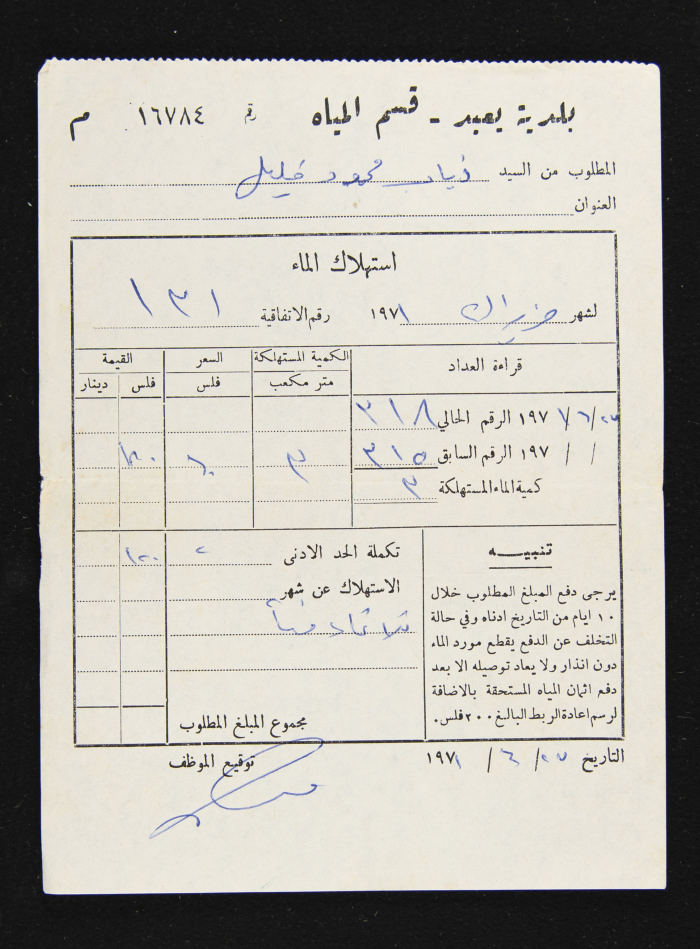 بلدية يعبد - قسم المياه رقم ١٦٧٨٤ م
المطلوب من السيد ذياب محمود خليل
العنوان
استهلاك الماء
لشهر حزيران ١٩٧١ رقم الاتفاقية ١٣١
قراءة العداد الكمية المستهلكة السعر القيمة
متر مكعب فلس فلس دينار
٢٧/٦/١٩٧١ الرقم الحالي ٣١٨
/ / ١٩٧ الرقم السابق ٣١٥ ٣ ٦٠ ١٨٠
كمية الماء المستهلكة ٣
تنبيــه
يرجى دفع المبلغ المطلوب خلال
١٠ ايام من التاريخ ادناه وفي حالة
التخلف عن الدفع يقطع مورد الماء
دون انذار ولا يعاد توصيله الا بعد
دفع اثمان المياه المستحقة بالاضافة
لرسم اعادة الربط البالغ ٢٠٠ فلس.
تكملة الحد الادنى ٢ ١٢٠
الاستهلاك عن شهر
مجموع المبلغ المطلوب
التاريخ ٢٧/ ٦ / ١٩٧١
توقيع الموظف